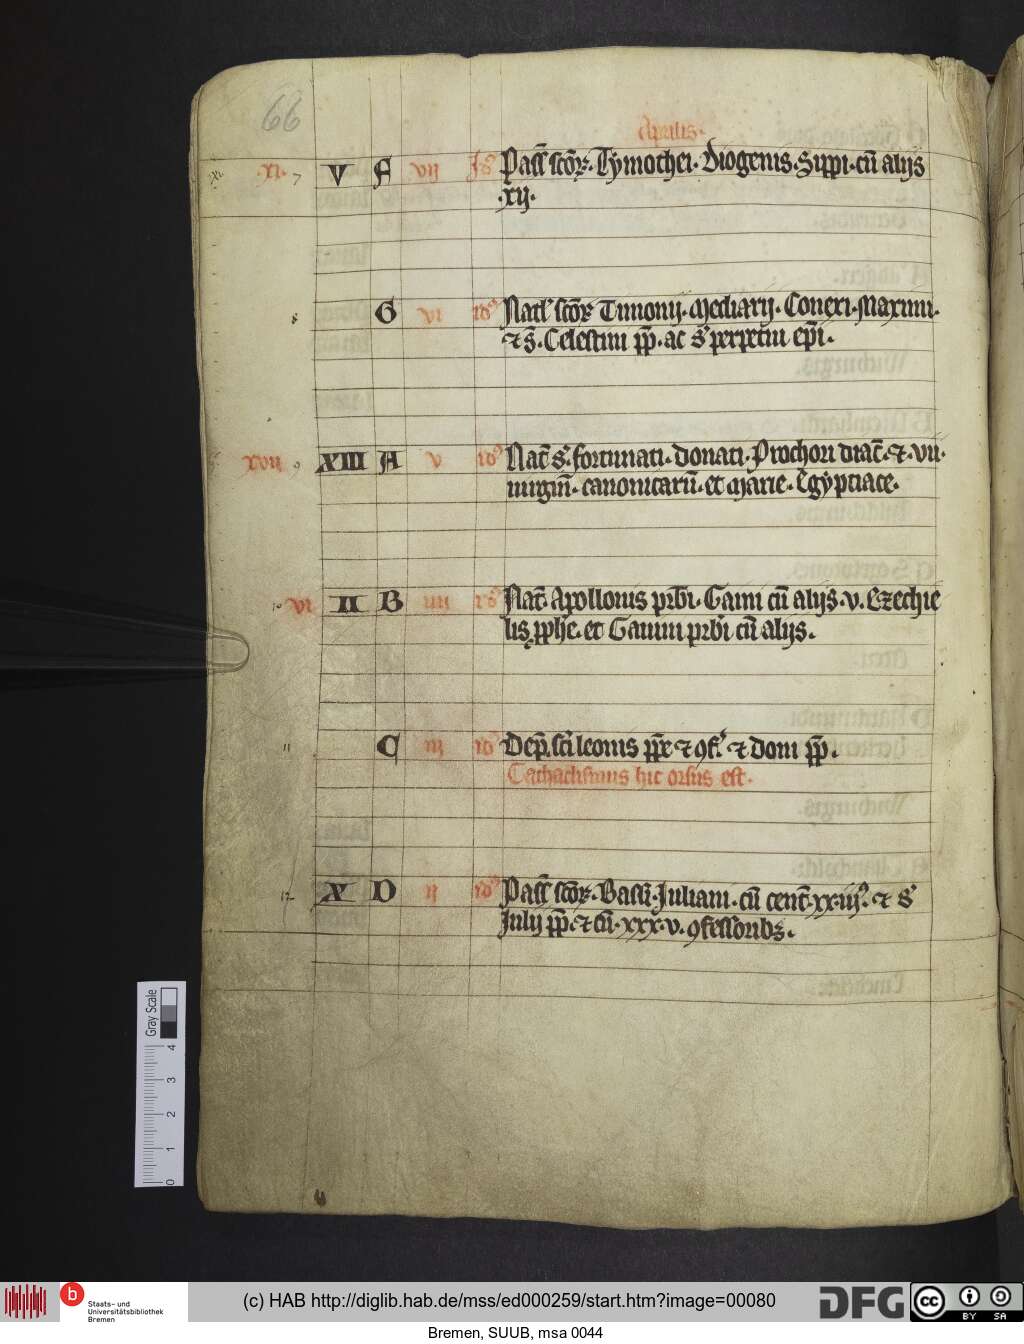 66
Aprilis.
.xi. 7 V F vij Id' Pass' scor̄. Tymothei. Diogenis. Sippi. cū alijs
.xij.
8 G vi id' Natl' scor̄ Timonij. Mediarij. Conexi. Maximi.
et s̄. Celestini pp̄. ac s' perpetui ep̄i.
xvii 9 XIII A v id' Nat̄ s̄. fortunati. donati. Prochori diac̄. et. vii.
uirgin̄. canonicarū. et Marie. Egyptiace.
10 vi II B iiii id' Nat̄. Apollonis prb̄i. Gaini cū alijs. v. Ezechie
lis pph̄e. et Gainni prb̄i cū alijs.
11 C iii id' Dep̄. sc̄i leonis pp̄e et ꝯf'. et domi pp̄.
Cathaclismus hic orsus est.
12 X D ii id' Pass' scor̄. Bassi. Juliani. cū cent̄. xx. iij'. et s'
Julij pp̄. et cū. xxx. v. ꝯfessoribꝫ.
Gray Scale
0 1 2 3 4
b Staats- und
Universitätsbibliothek
Bremen
(c) HAB http://diglib.hab.de/mss/ed000259/start.htm?image=00080
DFG
cc BY SA
Bremen, SUUB, msa 0044